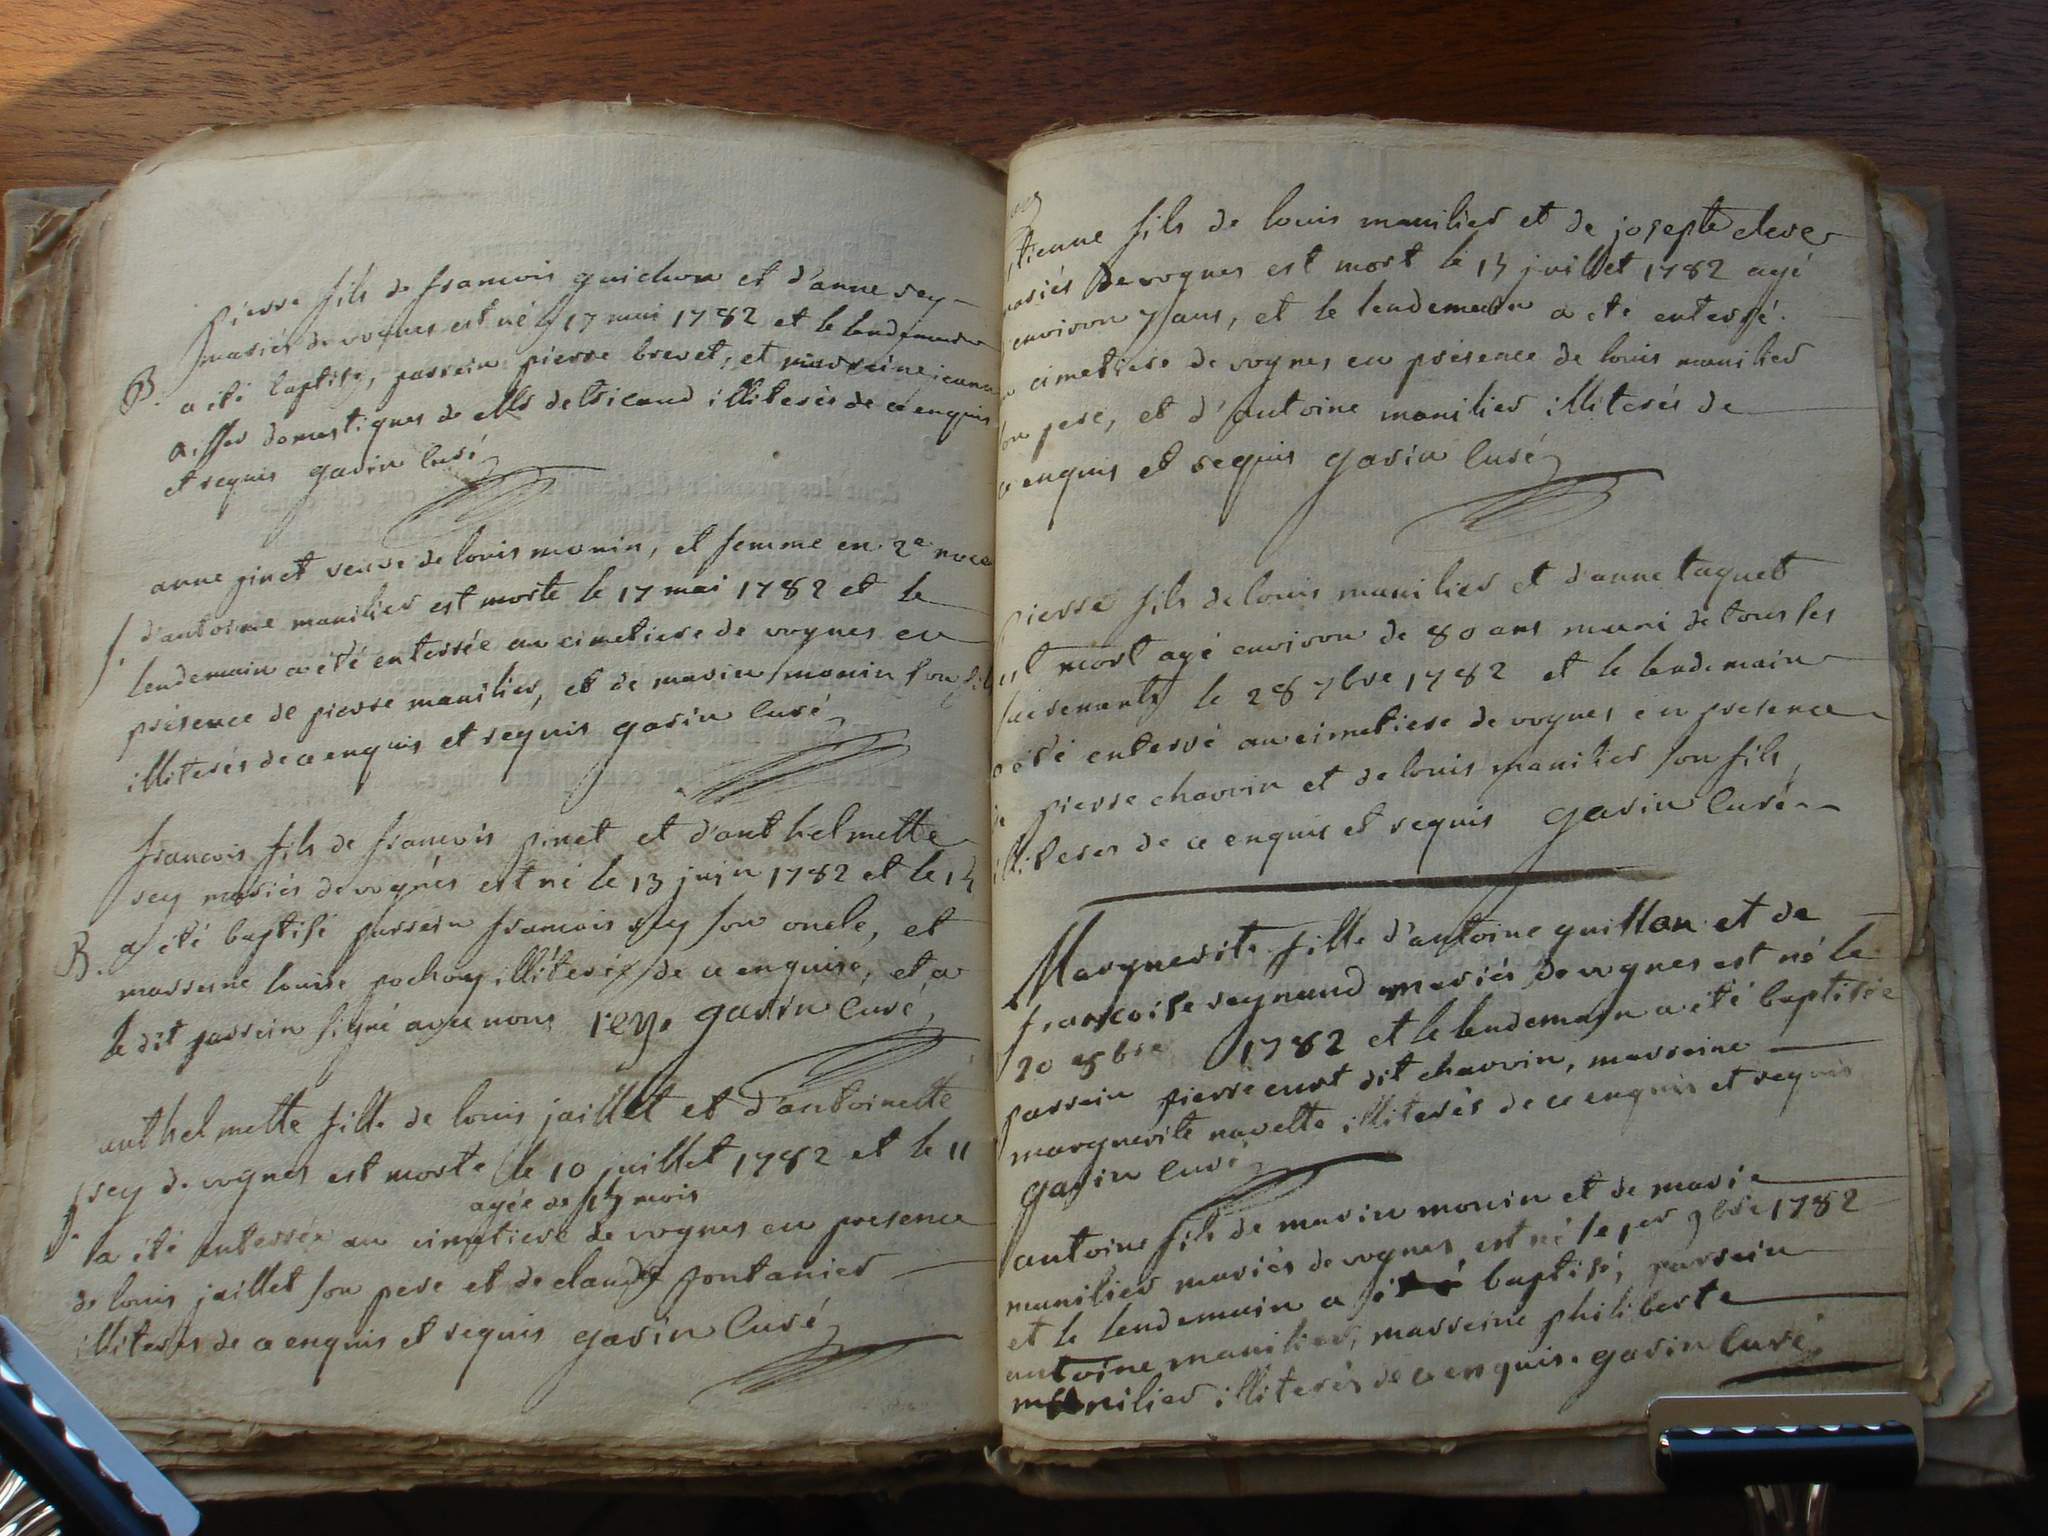 pierre fils de francois guichon et d'anne rey
mariés de vognes est né le 17 mai 1782 et le lendemain
B. a été baptisé, parrein pierre brevet, et marreine jeanne
domestiques de illiterés de ce enquis
et requis gavin Curé
anne pinet veuve de louis monin, et femme en 2e noce
S. d'antoine manilier est morte le 17 mai 1782 et le
lendemain a été enterrée au cimetiere de vognes en
présence de pierre manilier, et de marin monin son fils
illiterés de ce enquis et requis gavin Curé
francois fils de francois pinet et d'anthelmette
rey mariés de vognes est né le 13 juin 1782 et le 14
B. a été baptisé parrein francois rey son oncle, et
marreine louise pochoy illiterée de ce enquise, et a
le dit parrein signé avec nous rey. gavin Curé
anthelmette fille de louis jaillet et d'antoinette
S. rey de vognes est morte le 10 juillet 1782 et le 11
agée de 14 mois
a été enterrée au cimetiere de vognes en presence
de louis jaillet son pere et de claude fontanier
illiterés de ce enquis et requis gavin Curé
etienne fils de louis manilier et de josepte
mariés de vognes est mort le 14 juillet 1782 agé
environ 7 ans, et le lendemain a été enterré
au cimetiere de vognes en présence de louis manilier
son pere, et d'antoine manilier illiterés de
ce enquis et requis gavin Curé
pierre fils de louis manilier et d'anne taquet
est mort agé environ de 80 ans muni de tous ses
sacrements le 28 7bre 1782 et le lendemain
a été enterré au cimetiere de vognes en presence
de pierre chavvin et de louis manilier son fils,
illiteres de ce enquis et requis gavin Curé
Marguerite fille d'antoine guillon et de
francoise reynaud mariés de vognes est né le
20 8bre 1782 et le lendemain a été baptisée
parrein pierre curt dit chavvin, marreine
marguerite navette illiterés de ce enquis et requis
gavin Curé
antoine fils de marin monin et de marie
manilier mariés de vognes est né le 1er 9bre 1782
et le lendemain a été baptisé, parrein
antoine manilier, marreine philiberte
manilier illiterés de ce enquis. gavin Curé